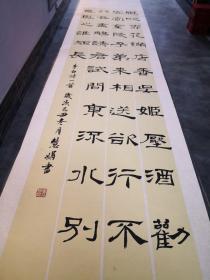 風吹柳花滿店香吳姬壓酒勸
客嘗金陵子弟來相送欲行不
行各盡觴請君試問東流水別
意與之誰短長
李白詩一首 歲次丑冬月 慧娟書